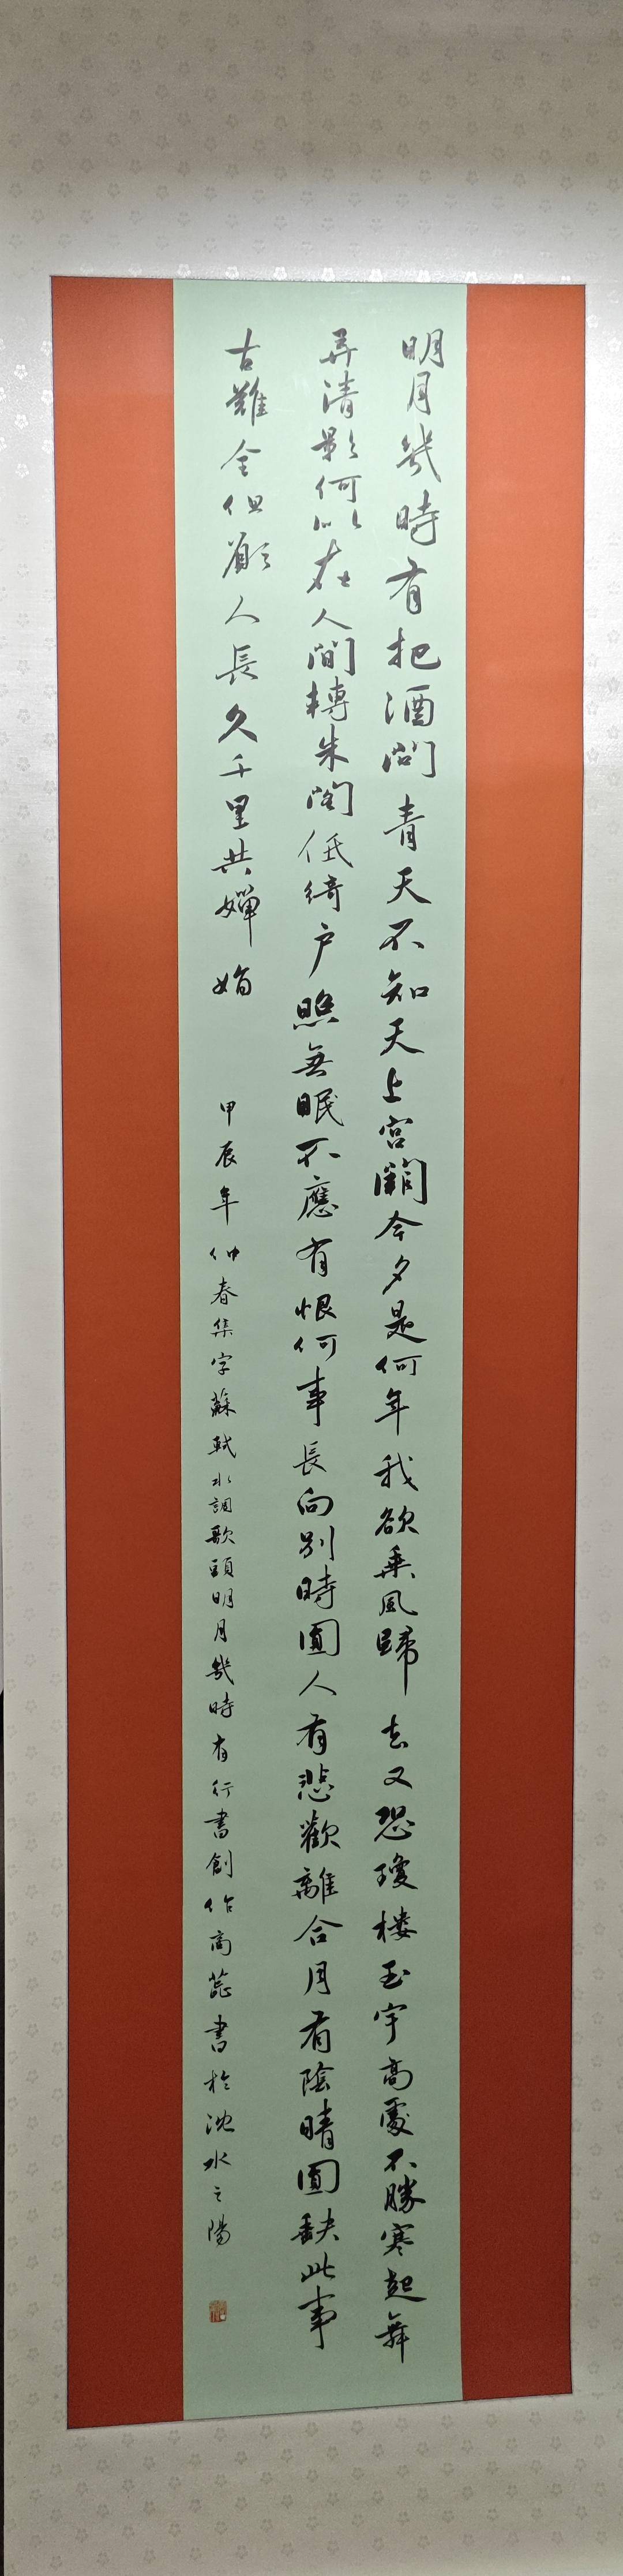 明月幾時有把酒問青天不知天上宮闕今夕是何年我欲乘風歸去又恐瓊樓玉宇高處不勝寒起舞
弄清影何似在人間轉朱閣低綺户照無眠不應有恨何事長向別時圓人有悲歡離合月有陰晴圓缺此事
古難全但願人長久千里共嬋娟
甲辰年仲春集字蘇軾水調歌頭明月幾時有行書創作高蕊書於沈水之陽